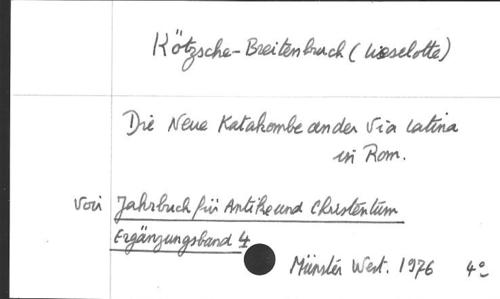 Kötzsche-Breitenbruch (Lieselotte)
Die Neue Katakombe an der Via Latina
in Rom.
Voir Jahrbuch für Antike und Christentum
Ergänzungsband 4
Münster West. 1976 4°